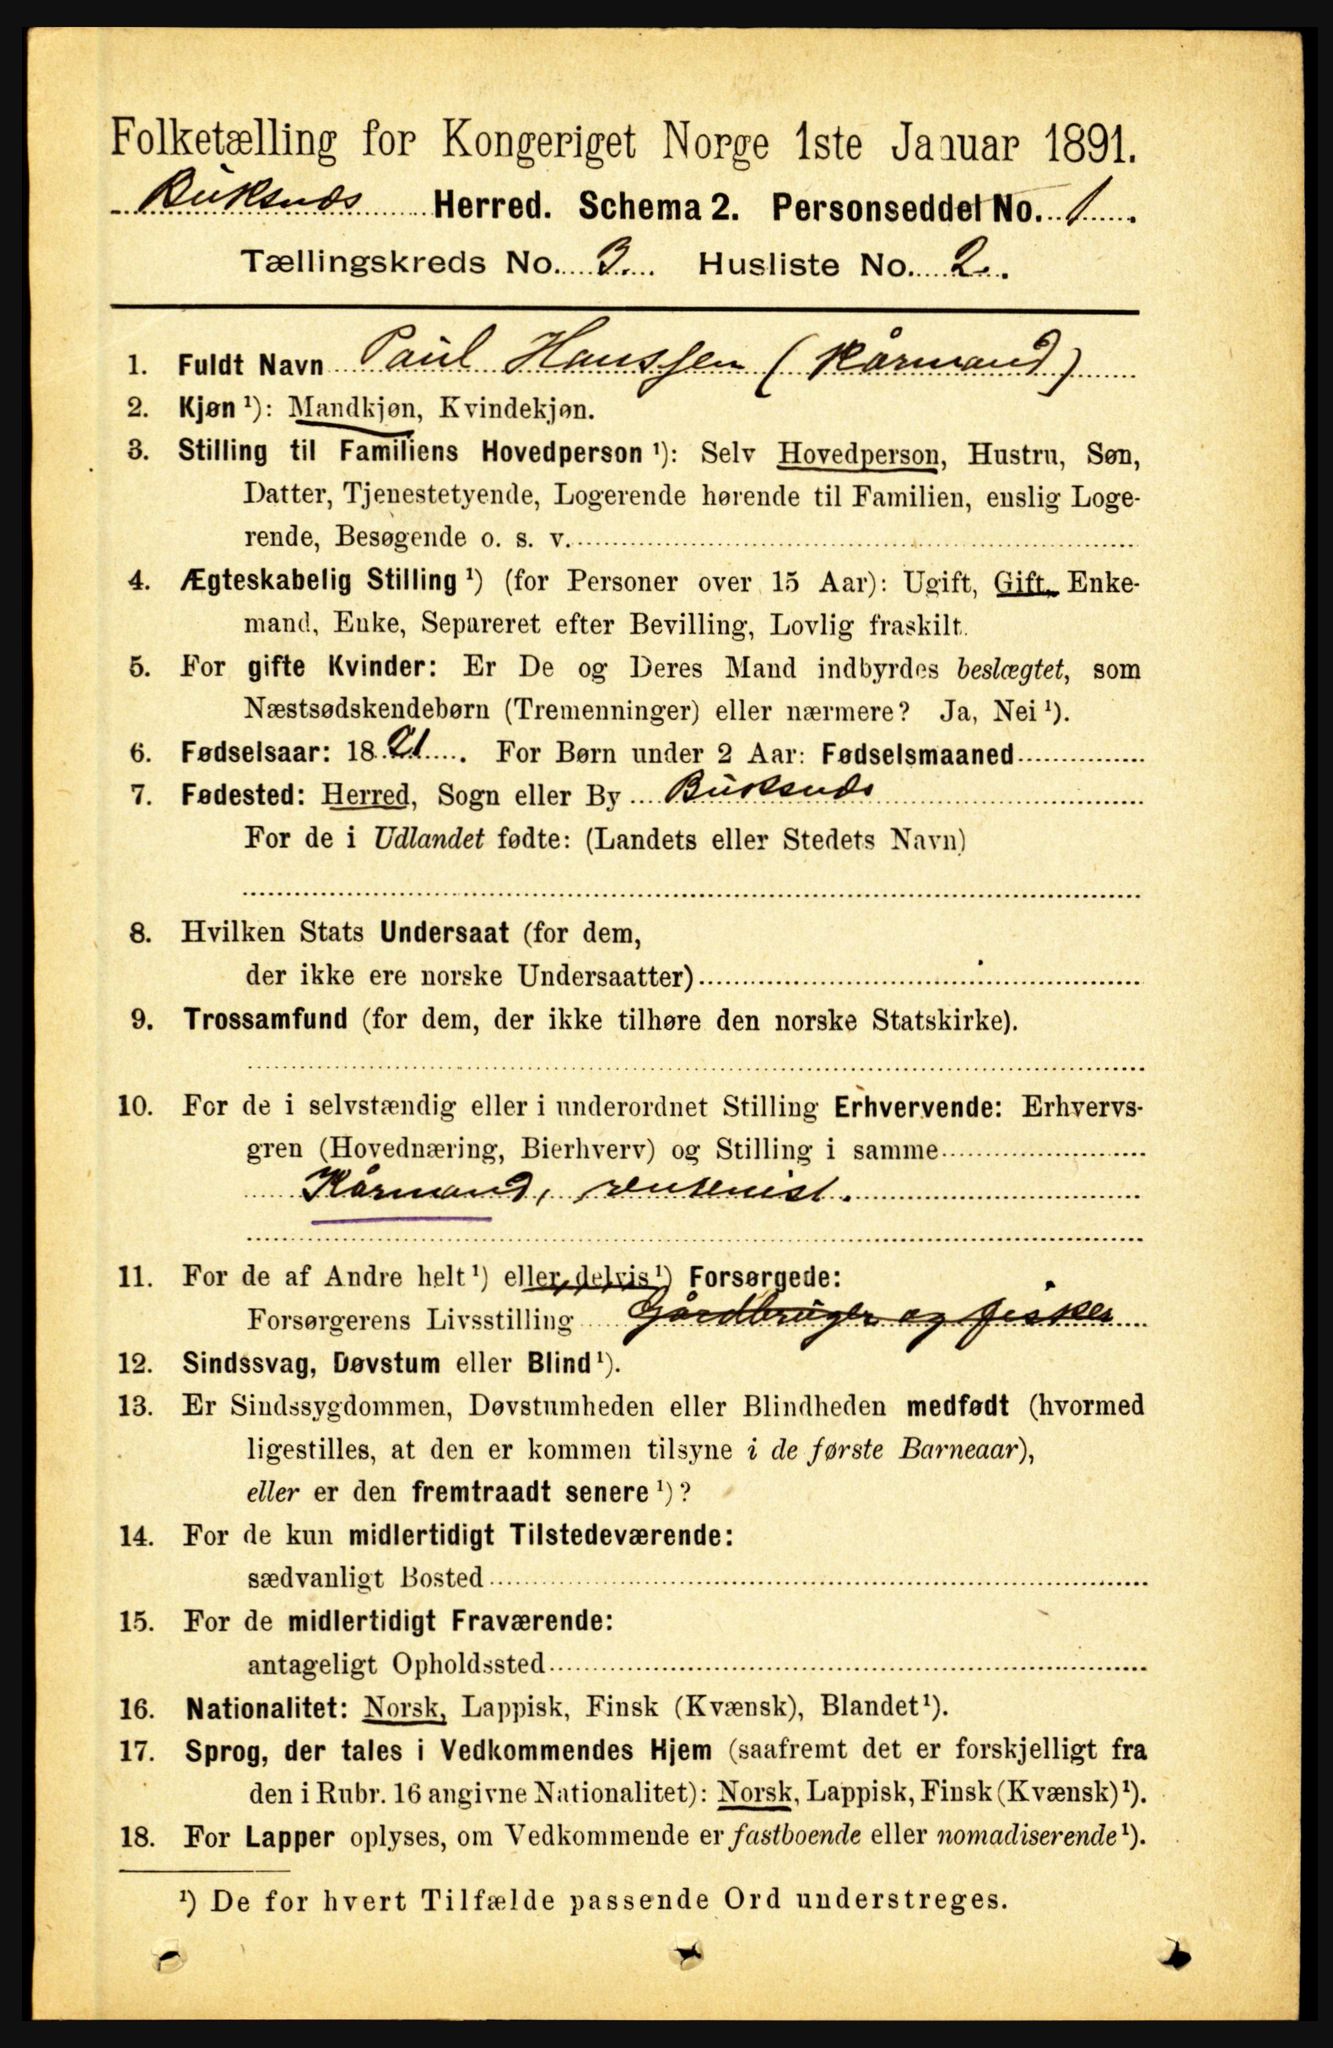 Folketælling for Kongeriget Norge 1ste Januar 1891.
Buksnæs Herred. Schema 2. Personseddel No. 1.
Tællingskreds No. 3. Husliste No. 2.
1. Fuldt Navn Paul Hanssen (Kårmand)
2. Kjøn ¹): Mandkjøn, Kvindekjøn.
3. Stilling til Familiens Hovedperson ¹): Selv Hovedperson, Hustru, Søn,
Datter, Tjenestetyende, Logerende hørende til Familien, enslig Loge-
rende, Besøgende o. s. v.
4. Ægteskabelig Stilling ¹) (for Personer over 15 Aar): Ugift, Gift, Enke-
mand, Enke, Separeret efter Bevilling, Lovlig fraskilt.
5. For gifte Kvinder: Er De og Deres Mand indbyrdes beslægtet, som
Næstsødskendebørn (Tremenninger) eller nærmere? Ja, Nei ¹).
6. Fødselsaar: 1821. For Børn under 2 Aar: Fødselsmaaned
7. Fødested: Herred, Sogn eller By Buksnæs
For de i Udlandet fødte: (Landets eller Stedets Navn)
8. Hvilken Stats Undersaat (for dem,
der ikke ere norske Undersaatter)
9. Trossamfund (for dem, der ikke tilhøre den norske Statskirke).
10. For de i selvstændig eller i underordnet Stilling Erhvervende: Erhvervs-
gren (Hovednæring, Bierhverv) og Stilling i samme
Kårmand, rentenist.
11. For de af Andre helt ¹) eller delvis ¹) Forsørgede:
Forsørgerens Livsstilling Gårdbruger og fisker
12. Sindssvag, Døvstum eller Blind ¹).
13. Er Sindssygdommen, Døvstumheden eller Blindheden medfødt (hvormed
ligestilles, at den er kommen tilsyne i de første Barneaar),
eller er den fremtraadt senere ¹)?
14. For de kun midlertidigt Tilstedeværende:
sædvanligt Bosted
15. For de midlertidigt Fraværende:
antageligt Opholdssted
16. Nationalitet: Norsk, Lappisk, Finsk (Kvænsk), Blandet ¹).
17. Sprog, der tales i Vedkommendes Hjem (saafremt det er forskjelligt fra
den i Rubr. 16 angivne Nationalitet): Norsk, Lappisk, Finsk (Kvænsk) ¹).
18. For Lapper oplyses, om Vedkommende er fastboende eller nomadiserende ¹).
¹) De for hvert Tilfælde passende Ord understreges.